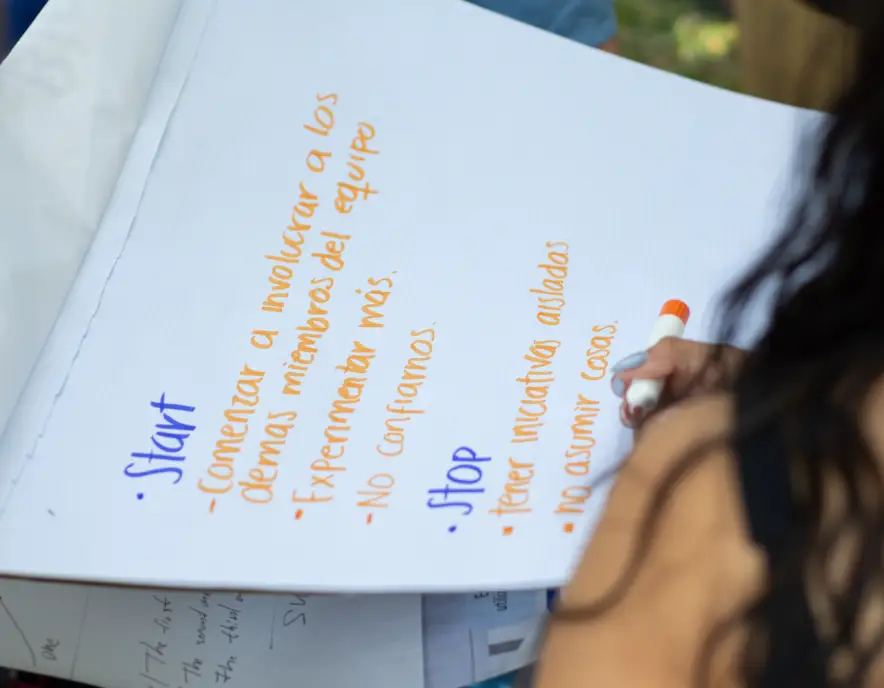 · Start
- Comenzar a involucrar a los
demas miembros del equipo
· Experimentar más.
- No confiarnos.
· Stop
· tener iniciativas aislados
· no asumir cosas.
/ The first
The second
The third
su